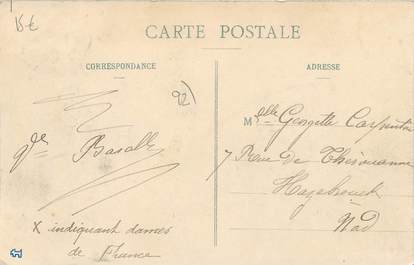 15 €
CARTE POSTALE
CORRESPONDANCE
ADRESSE
92)
Melle Georgette Carpentier
7 Rue de Thérouanne
Hazebrouck
Nord
X indiquant dames
de France